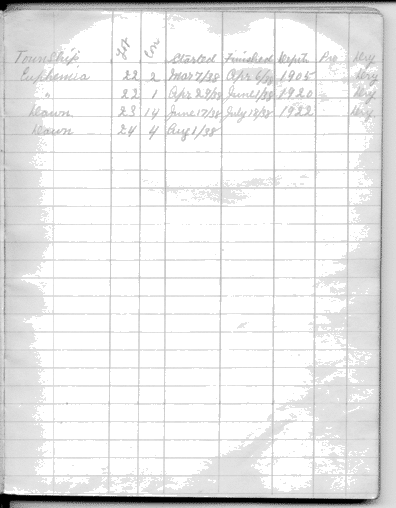 Township Lot Con Started Finished Depth Pro Dry
Euphemia 22 2 Mar 7/38 Apr 6/38 1905 Dry
" 22 1 Apr 29/38 June 1/38 1920 Dry
Dawn 23 14 June 17/38 July 18/38 1922 Dry
Dawn 24 4 Aug 1/38